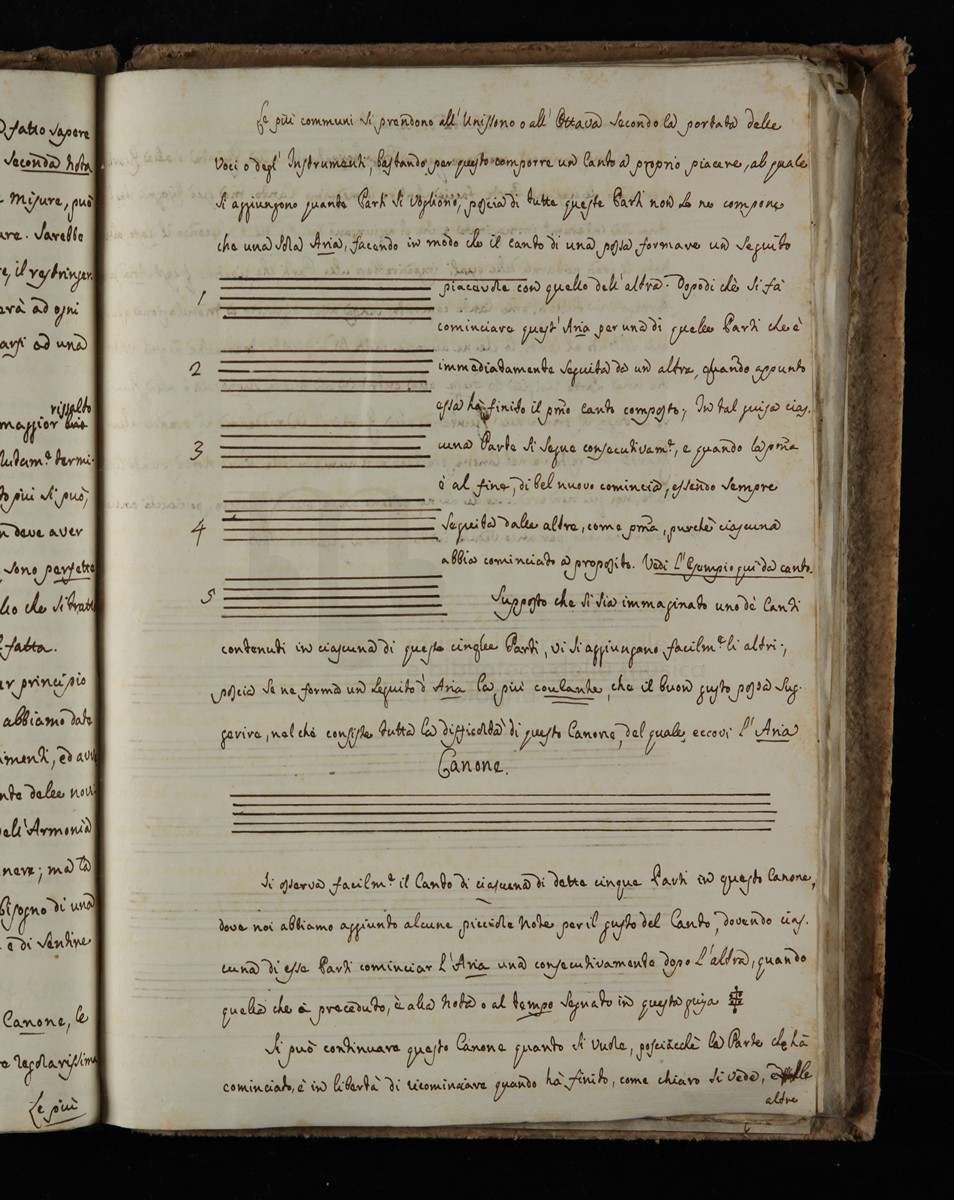 D fatto sapere
Seconda Nota
Misure, può
are. Sarebbe
e, il restringer
arà ad ogni
arsi ad una
rissalto
maggior
lutam.e termi-
to più si può,
n deve aver
sono perfetta
lio che si tratt
fatta.
er principio
abbiamo date
imenti, ed av
nte delle not
dell'Armonia
nere; ma la
bisogno di una
è di sentire
Canone, le
e regolarissim
Le più
Le più communi si prendono all'Unissono o all'Ottava secondo la portata delle
Voci o degl'Instrumenti, bastando per questo comporre un Canto a proprio piacere, al quale
si aggiungono quante Parti si vogliono, poscia di tutte queste Parti non se ne compone
che una sola Aria, facendo in modo che il canto di una possa formare un seguito
1 piacevole con quello dell'altra. Dopodichè si fà
cominciare quest'Aria per una di quelle Parti che è
2 immediatamente seguita da un altra, quando appunto
essa hà finito il p̃mo Canto composto; In tal guisa cias-
3 cuna Parte si segue consecutivam.e, e quando la p̃ma
è al fine, di bel nuovo comincia, essendo sempre
4 seguita dalle altre, come p̃ma, purchè ciascuna
abbia cominciato a proposito. Vedi l'Esempio qui da canto.
5 Supposto che si sia immaginato uno de' Canti
contenuti in ciascuna di queste cinque Parti, vi si aggiungano facilm.e li altri;
poscia se ne forma un seguito d'Aria la più coulante, che il buon gusto possa sug-
gerire, nel che consiste tutta la difficoltà di questo Canone, del quale, eccovi l'Aria
Canone.
Si osserva facilm.e il Canto di ciascuna di dette cinque Parti in questo Canone,
dove noi abbiamo aggiunto alcune picciole Note per il gusto del Canto, dovendo cias-
cuna di esse Parti cominciar l'Aria una consecutivamente dopo l'altra, quando
quella che a preceduto, è alla nota o al tempo segnato in questa guisa
Si può continuare questo Canone quanto si vuole, posciacchè la Parte che hà
cominciato, è in libertà di ricominciare quando hà finito, come chiaro si vede,
altre